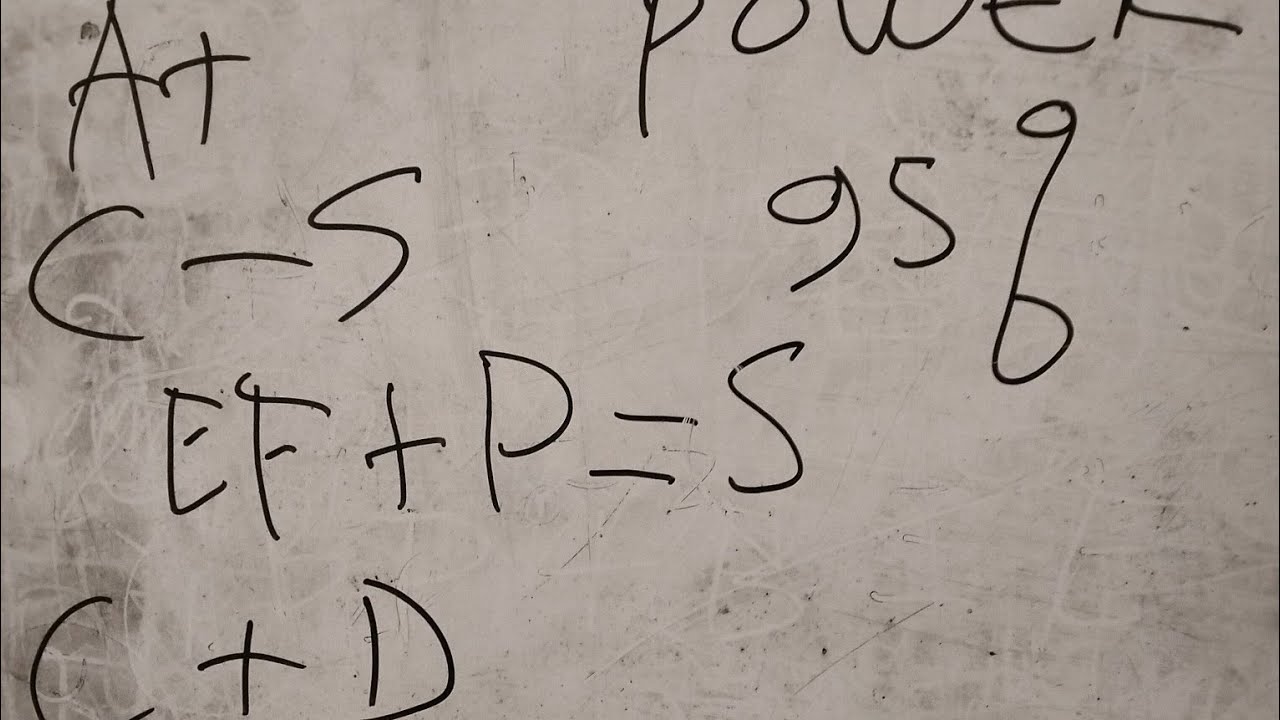 A+
power
C-S
95%
EF+P=S
C+D